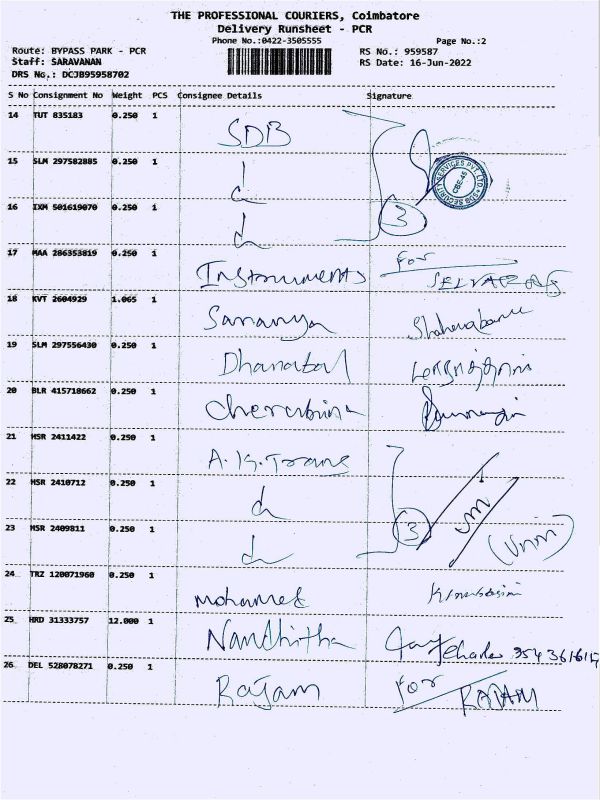 THE PROFESSIONAL COURIERS, Coimbatore
Delivery Runsheet - PCR
Phone No.:0422-3505555 Page No.:2
Route: BYPASS PARK - PCR RS No.: 959587
Staff: SARAVANAN RS Date: 16-Jun-2022
DRS No.: DCJB95958702
S No Consignment No Weight PCS Consignee Details Signature
14 TUT 835183 0.250 1 SDB
15 SLM 297582885 0.250 1 d
SDB SECURITY SERVICES PVT. LTD
CBE-45
16 IXM 501619070 0.250 1 d 3
17 MAA 286353819 0.250 1 Instruments For
18 KVT 2604929 1.065 1 Saranya
19 SLM 297556430 0.250 1 Dhanabal
20 BLR 415718662 0.250 1 Cherubina
21 HSR 2411422 0.250 1 A.K. Trans
22 HSR 2410712 0.250 1 d
23 HSR 2409811 0.250 1 d 3
24 TRZ 120071960 0.250 1 Mohamed
25 HRD 31333757 12.000 1 Nandhitha
26 DEL 528078271 0.250 1 Rajam For RAJAM